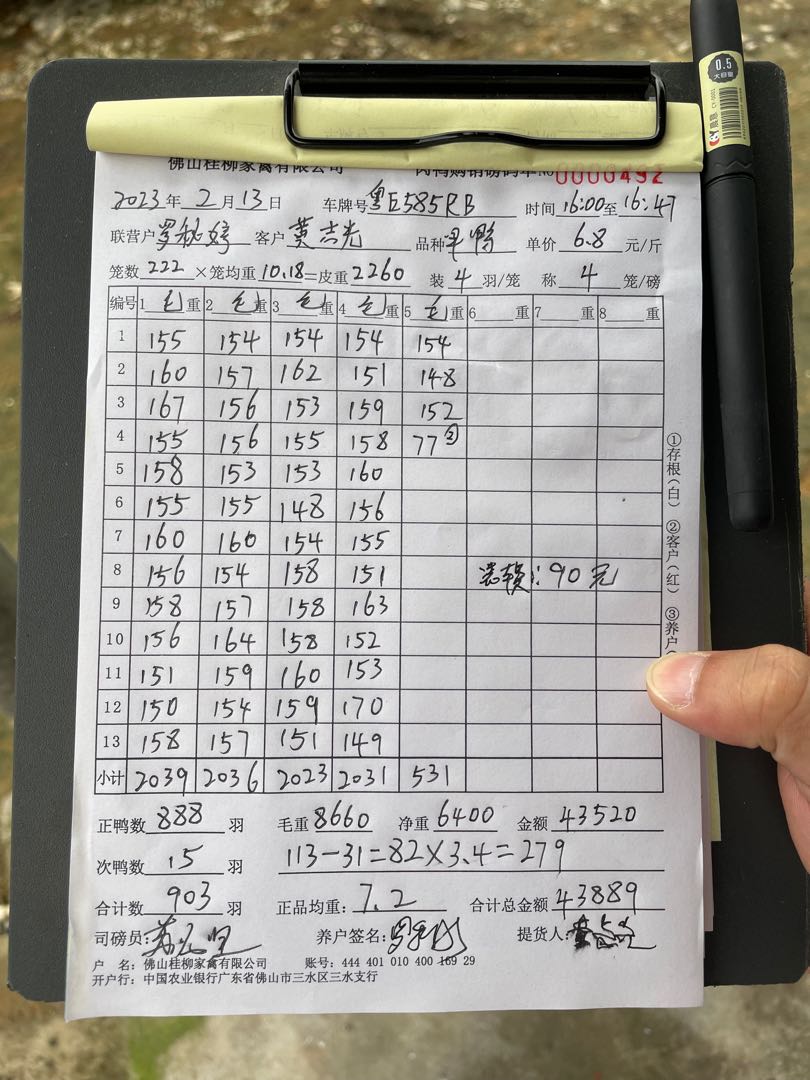 0.5
大容量
晨光
佛山桂柳家禽有限公司 肉鸭购销磅码单 No 0000492
2023年 2月13日 车牌号 粤E585RB 时间 16:00至16:47
联营户 罗秘婷 客户 黄志光 品种 单价 6.8 元/斤
笼数 222 ×笼均重 10.18 =皮重 2260 装 4 羽/笼 称 4 笼/磅
编号 1 毛 重 2 毛 重 3 毛 重 4 毛 重 5 毛 重 6 重 7 重 8 重
1 155 154 154 154 154
2 160 157 162 151 148
3 167 156 153 159 152
4 155 156 155 158 77②
5 158 153 153 160
6 155 155 148 156
7 160 160 154 155
8 156 154 158 151 装赖: 90元
9 158 157 158 163
10 156 164 158 152
11 151 159 160 153
12 150 154 159 170
13 158 157 151 149
小计 2039 2036 2023 2031 531
①存根(白) ②客户(红) ③养户(
正鸭数 888 羽 毛重 8660 净重 6400 金额 43520
次鸭数 15 羽 113-31=82×3.4=279
合计数 903 羽 正品均重: 7.2 合计总金额 43889
司磅员: 养户签名: 提货人:
户 名: 佛山桂柳家禽有限公司 账号: 444 401 010 400 169 29
开户行: 中国农业银行广东省佛山市三水区三水支行